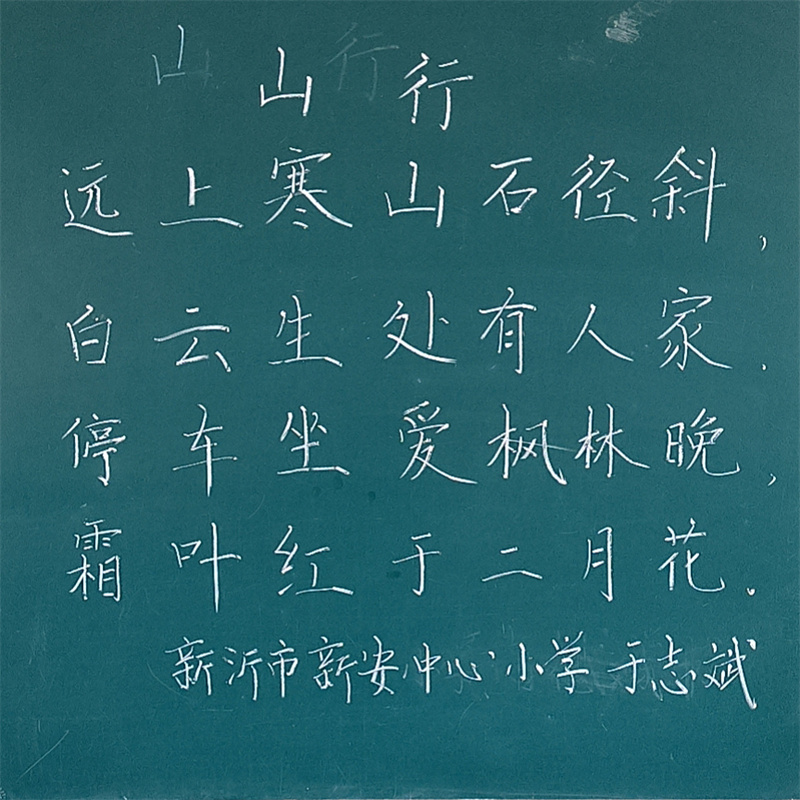 山行
远上寒山石径斜,
白云生处有人家.
停车坐爱枫林晚,
霜叶红于二月花。
新沂市新安中心小学 于志斌